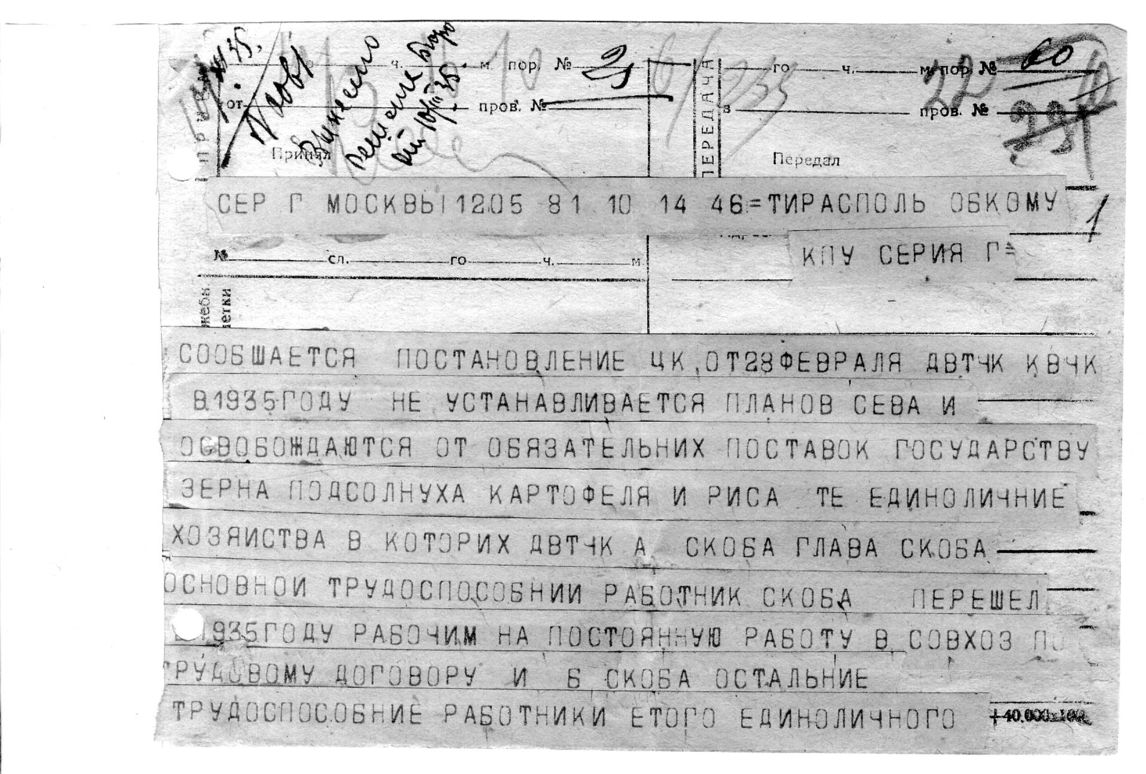 Вынесено
решение бюро
от 10/III-35.
ч. м. пор. № 25
го ч. м. пор. № 60
от пров. №
з пров. №
ПЕРЕДАЧА
Принял
Передал
СЕР Г МОСКВЫ 1205 81 10 14 46=ТИРАСПОЛЬ ОБКОМУ
КПУ СЕРИЯ Г=
№ сл. го ч. м.
СООБШАЕТСЯ ПОСТАНОВЛЕНИЕ ЦК ,ОТ28ФЕВРАЛЯ ДВТЧК КВЧК
В1935ГОДУ НЕ УСТАНАВЛИВАЕТСЯ ПЛАНОВ СЕВА И
ОСВОБОЖДАЮТСЯ ОТ ОБЯЗАТЕЛЬНИХ ПОСТАВОК ГОСУДАРСТВУ
ЗЕРНА ПОДСОЛНУХА КАРТОФЕЛЯ И РИСА ТЕ ЕДИНОЛИЧНИЕ
ХОЗЯИСТВА В КОТОРИХ ДВТЧК А СКОБА ГЛАВА СКОБА
ОСНОВНОИ ТРУДОСПОСОБНИИ РАБОТНИК СКОБА ПЕРЕШЕЛ
1935ГОДУ РАБОЧИМ НА ПОСТОЯННУЮ РАБОТУ В СОВХОЗ ПО
ТРУДОВОМУ ДОГОВОРУ И Б СКОБА ОСТАЛЬНИЕ
ТРУДОСПОСОБНИЕ РАБОТНИКИ ЕТОГО ЕДИНОЛИЧНОГО